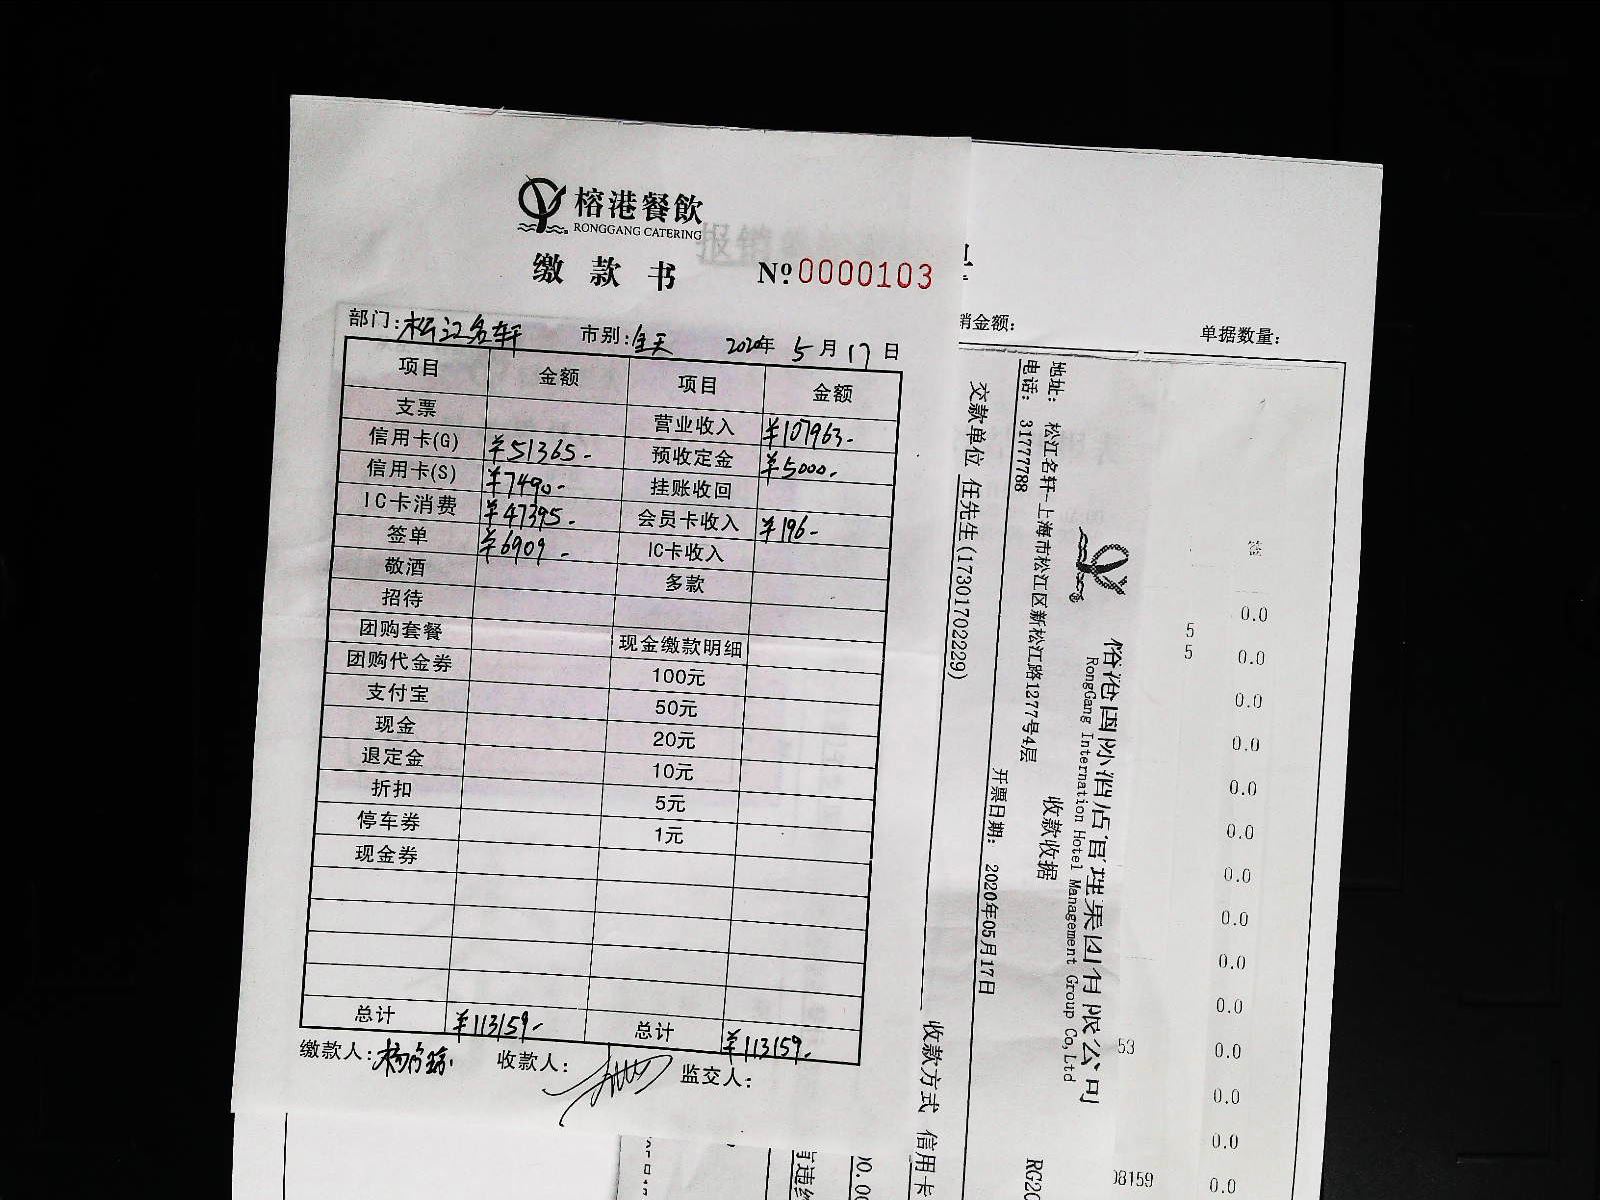 榕港餐飲
RONGGANG CATERING
缴款书 №0000103
部门:松江名轩 市别:全天 2020年 5月17日
项目 金额 项目 金额
支票 营业收入 ¥107963-
信用卡(G) ¥51365- 预收定金 ¥5000-
信用卡(S) ¥7490- 挂账收回
IC卡消费 ¥47395- 会员卡收入 ¥196-
签单 ¥6909- IC卡收入
敬酒 多款
招待
团购套餐 现金缴款明细
团购代金券 100元
支付宝 50元
现金 20元
退定金 10元
折扣 5元
停车券 1元
现金券
总计 ¥113159- 总计 ¥113159-
缴款人: 收款人: 监交人:
销金额: 单据数量:
地址: 松江名轩-上海市松江区新松江路1277号4层
电话: 31777788
交款单位 任先生(17301702229)
开票日期: 2020年05月17日
收款收据
RongGang International Hotel Management Group Co,Ltd
收款方式 信用卡
签
0.0
5
5 0.0
0.0
0.0
0.0
0.0
0.0
0.0
0.0
0.0
53 0.0
0.0
0.0
8159 0.0